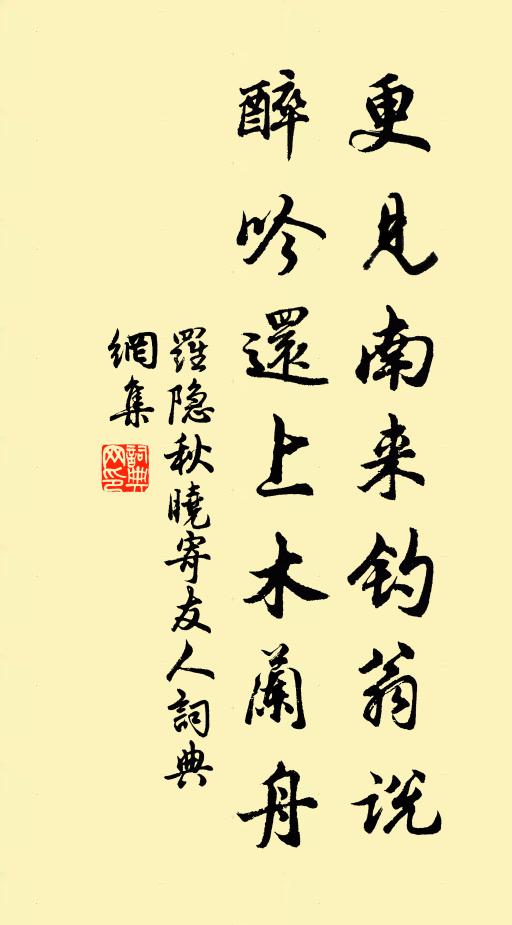 更見南来钓翁说
醉吟還上木蘭舟
羅隐秋曉寄友人詞典
網集
詞典网印